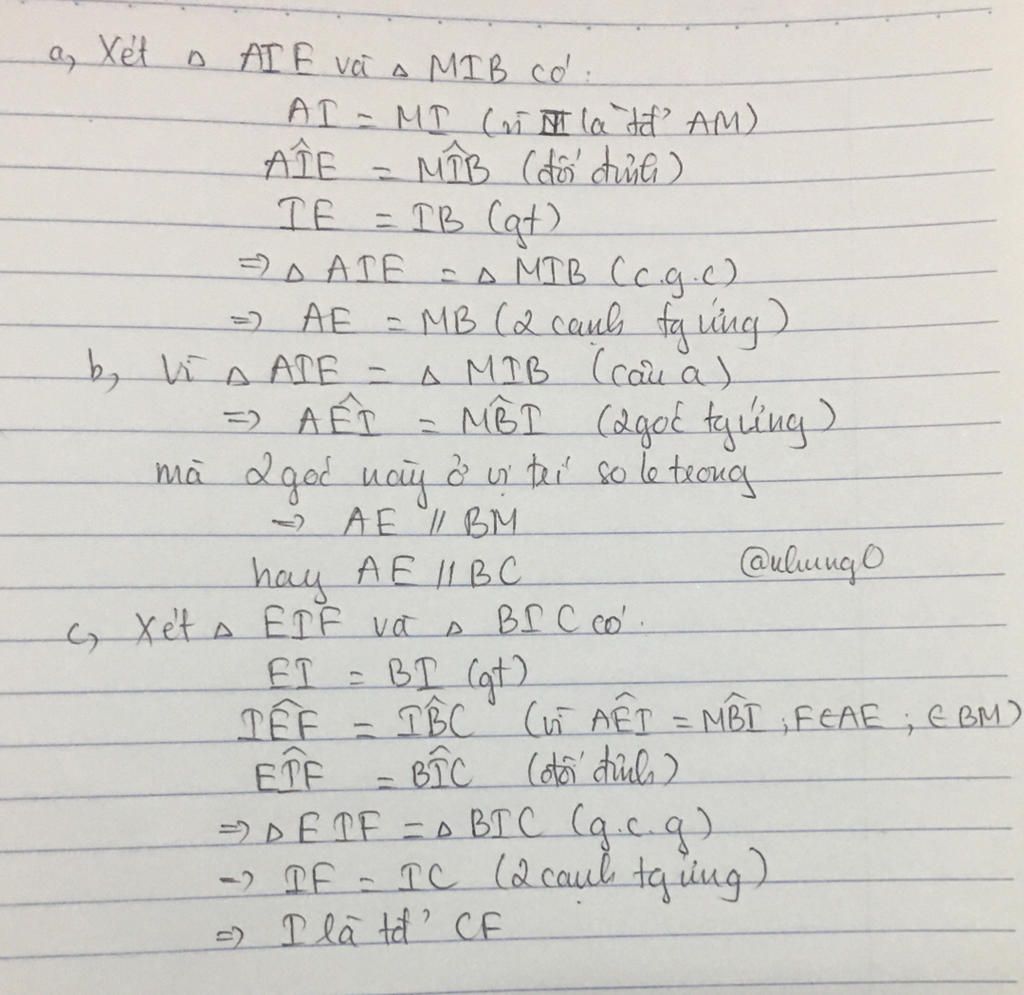 a, Xét △ AIE và △ MIB có:
AI = MI (vì I là tđ' AM)
AÎE = MÎB (đối đỉnh)
IE = IB (gt)
=> △ AIE = △ MIB (c.g.c)
=> AE = MB (2 cạnh tg ứng)
b, Vì △ AIE = △ MIB (câu a)
=> AÊI = MB̂I (2 góc tg ứng)
mà 2 góc này ở vị trí so le trong
=> AE // BM
hay AE // BC
@nhung0
c, Xét △ EIF và △ BIC có:
EI = BI (gt)
IÊF = IB̂C (vì AÊI = MB̂I ; F∈AE ; ∈ BM)
EÎF = BÎC (đối đỉnh)
=> △ EIF = △ BIC (g.c.g)
=> IF = IC (2 cạnh tg ứng)
=> I là tđ' CF